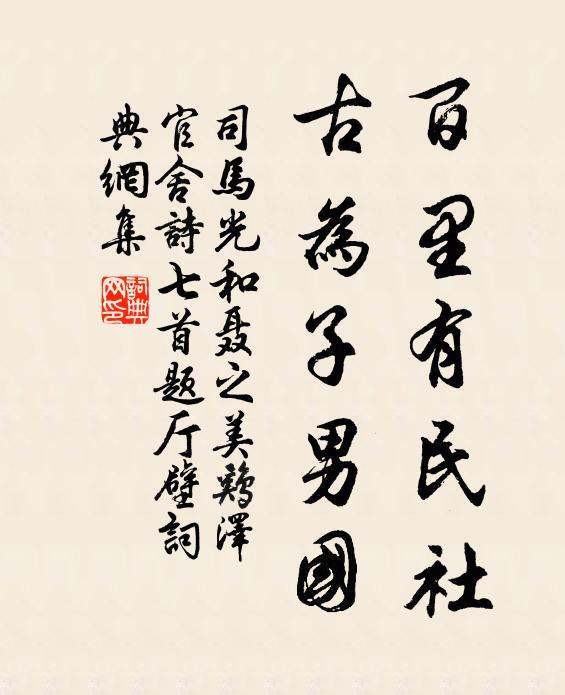 百里有民社
古為子男國
司馬光和聂之美鷄澤
官舍詩七首題厅壁詞
典網集
詞典网印